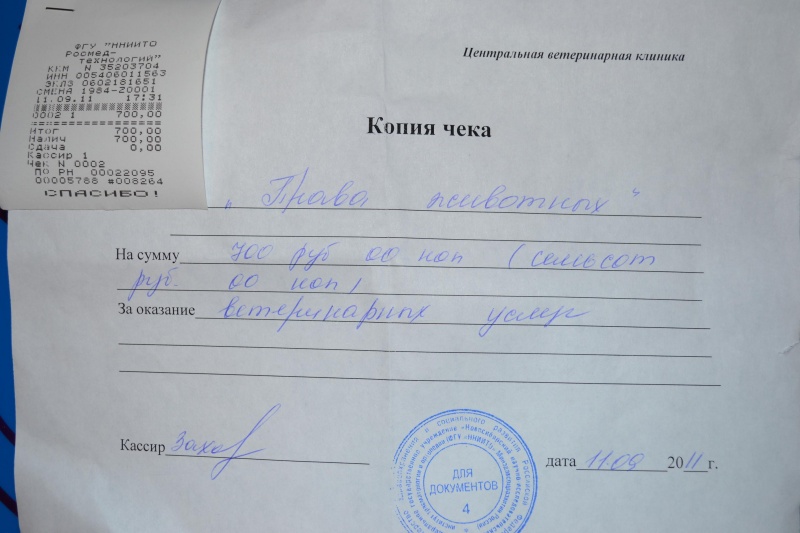 ФГУ "ННИИТО
Росмед-
технологий"
ККМ N 35203704
ИНН 005406011563
ЭКЛЗ 0602181651
СМЕНА 1984-Z0001
11.09.11 17:31
0002 1 700,00
Итог 700,00
Налич 700,00
Сдача 0,00
Кассир 1
Чек N 0002
ПО РН 00022095
00005788 #008264
СПАСИБО!
Центральная ветеринарная клиника
Копия чека
„Права животных"
На сумму 700 руб 00 коп (семьсот
руб. 00 коп)
За оказание ветеринарных услуг
Кассир
ДЛЯ
ДОКУМЕНТОВ
4
дата 11.09 2011 г.